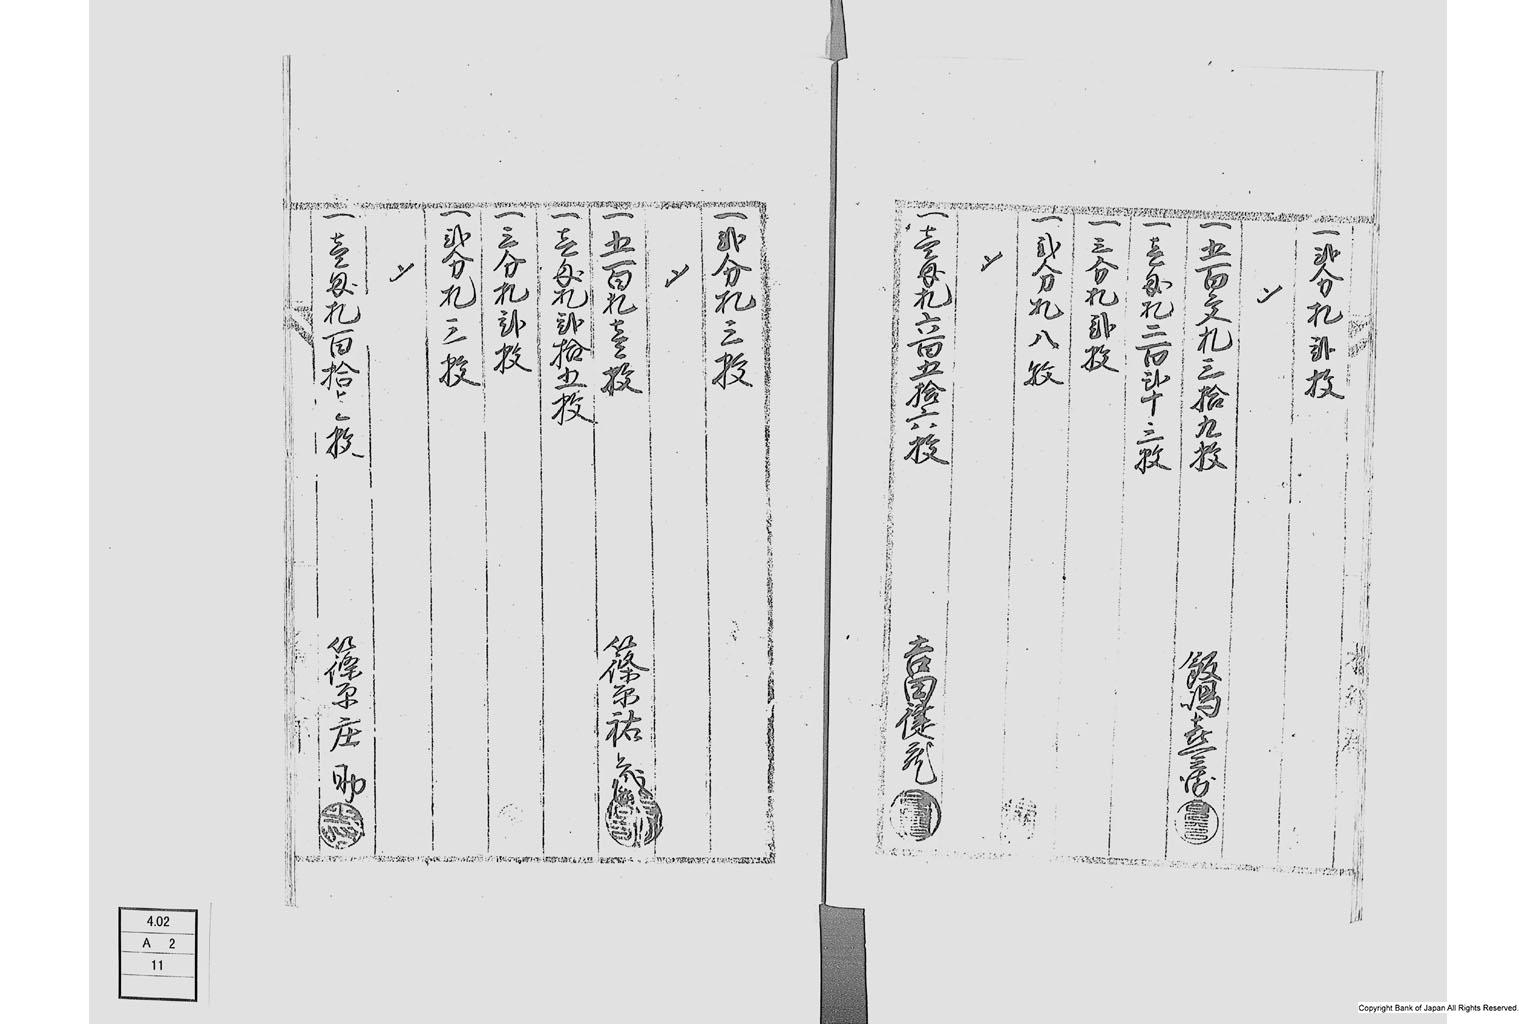 一弐分札弐枚
〆
一五百文札三拾九枚 飯嶋喜三
一壱匁札二百弐十三枚
一三分札弐枚
一弐分札八枚
〆
一壱匁札六百五拾六枚 吉田健蔵
一弐分札三枚
〆
一五百札壱枚 篠原祐
一壱匁札弐拾五枚
一三分札弐枚
一弐分札三枚
〆
一壱匁札百拾七枚 篠原庄助
4.02
A 2
11
Copyright Bank of Japan All Rights Reserved.